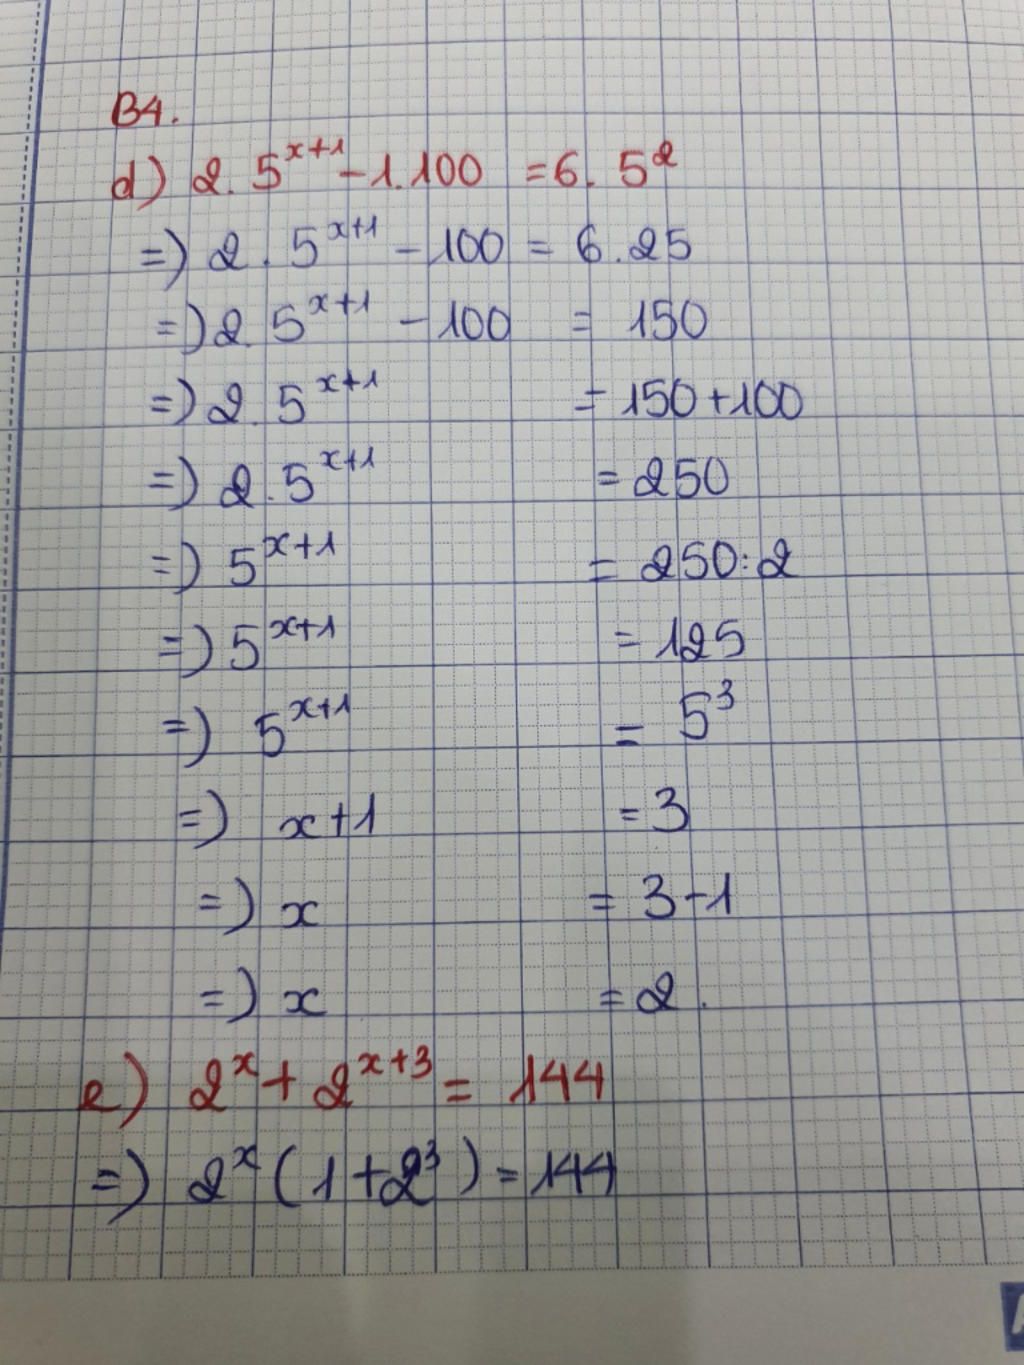 B4.
d) 2.5^(x+1) - 1.100 = 6.5²
=) 2.5^(x+1) - 100 = 6.25
=) 2.5^(x+1) - 100 = 150
=) 2.5^(x+1) = 150+100
=) 2.5^(x+1) = 250
=) 5^(x+1) = 250:2
=) 5^(x+1) = 125
=) 5^(x+1) = 5³
=) x+1 = 3
=) x = 3-1
=) x = 2.
e) 2^x + 2^(x+3) = 144
=) 2^x (1+2³) = 144